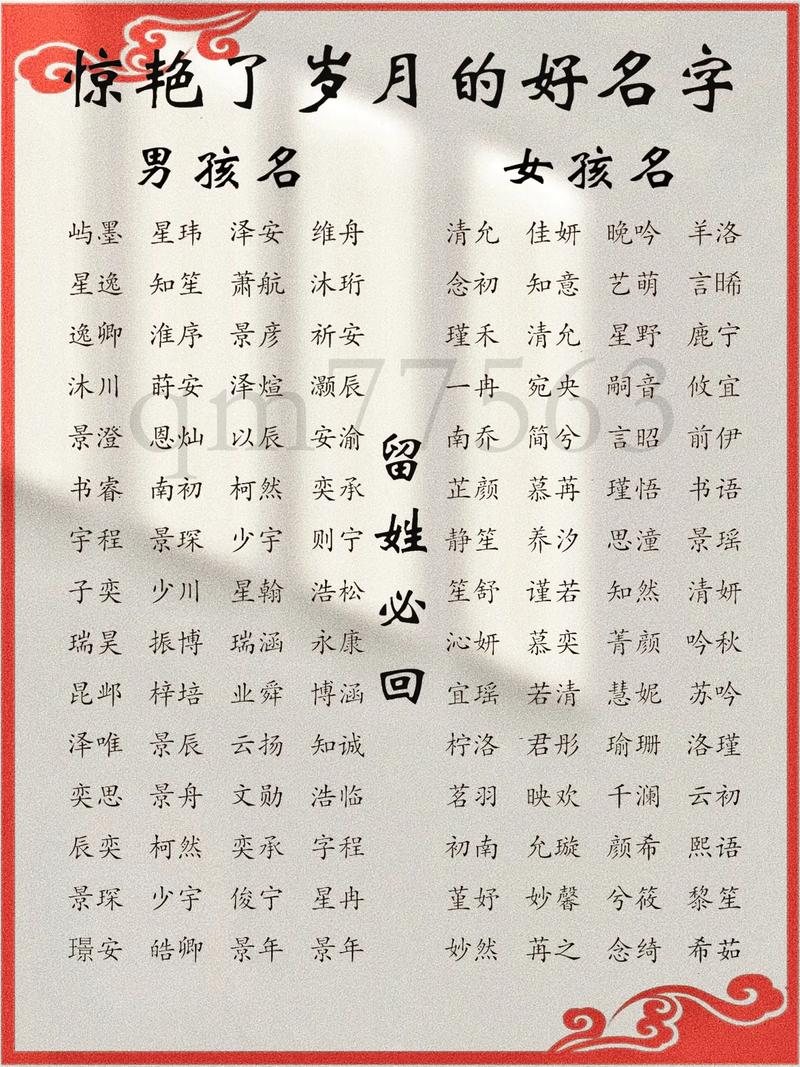 惊艳了岁月的好名字
男孩名
屿墨 星玮 泽安 维舟
星逸 知笙 萧航 沐珩
逸卿 淮序 景彦 祈安
沐川 蒔安 泽煊 灏辰
景澄 恩灿 以辰 安渝
书睿 南初 柯然 奕承
宇程 景琛 少宇 则宁
子奕 少川 星翰 浩松
瑞昊 振博 瑞涵 永康
昆邺 梓培 业舜 博涵
泽唯 景辰 云扬 知诚
奕思 景舟 文勋 浩临
辰奕 柯然 奕承 字程
景琛 少宇 俊宁 星冉
璟安 皓卿 景年 景年
留姓必回
女孩名
清允 佳妍 晚吟 羊洛
念初 知意 艺萌 言晞
瑾禾 清允 星野 鹿宁
一冉 宛央 嗣音 攸宜
南乔 简兮 言昭 前伊
芷颜 慕苒 瑾悟 书语
静笙 养汐 思潼 景瑶
笙舒 谨若 知然 清妍
沁妍 慕奕 菁颜 吟秋
宜瑶 若清 慧妮 苏吟
柠洛 君彤 瑜珊 洛瑾
茗羽 映欢 千澜 云初
初南 允璇 颜希 熙语
堇妤 妙馨 兮筱 黎笙
妙然 苒之 念绮 希茹
qm77563